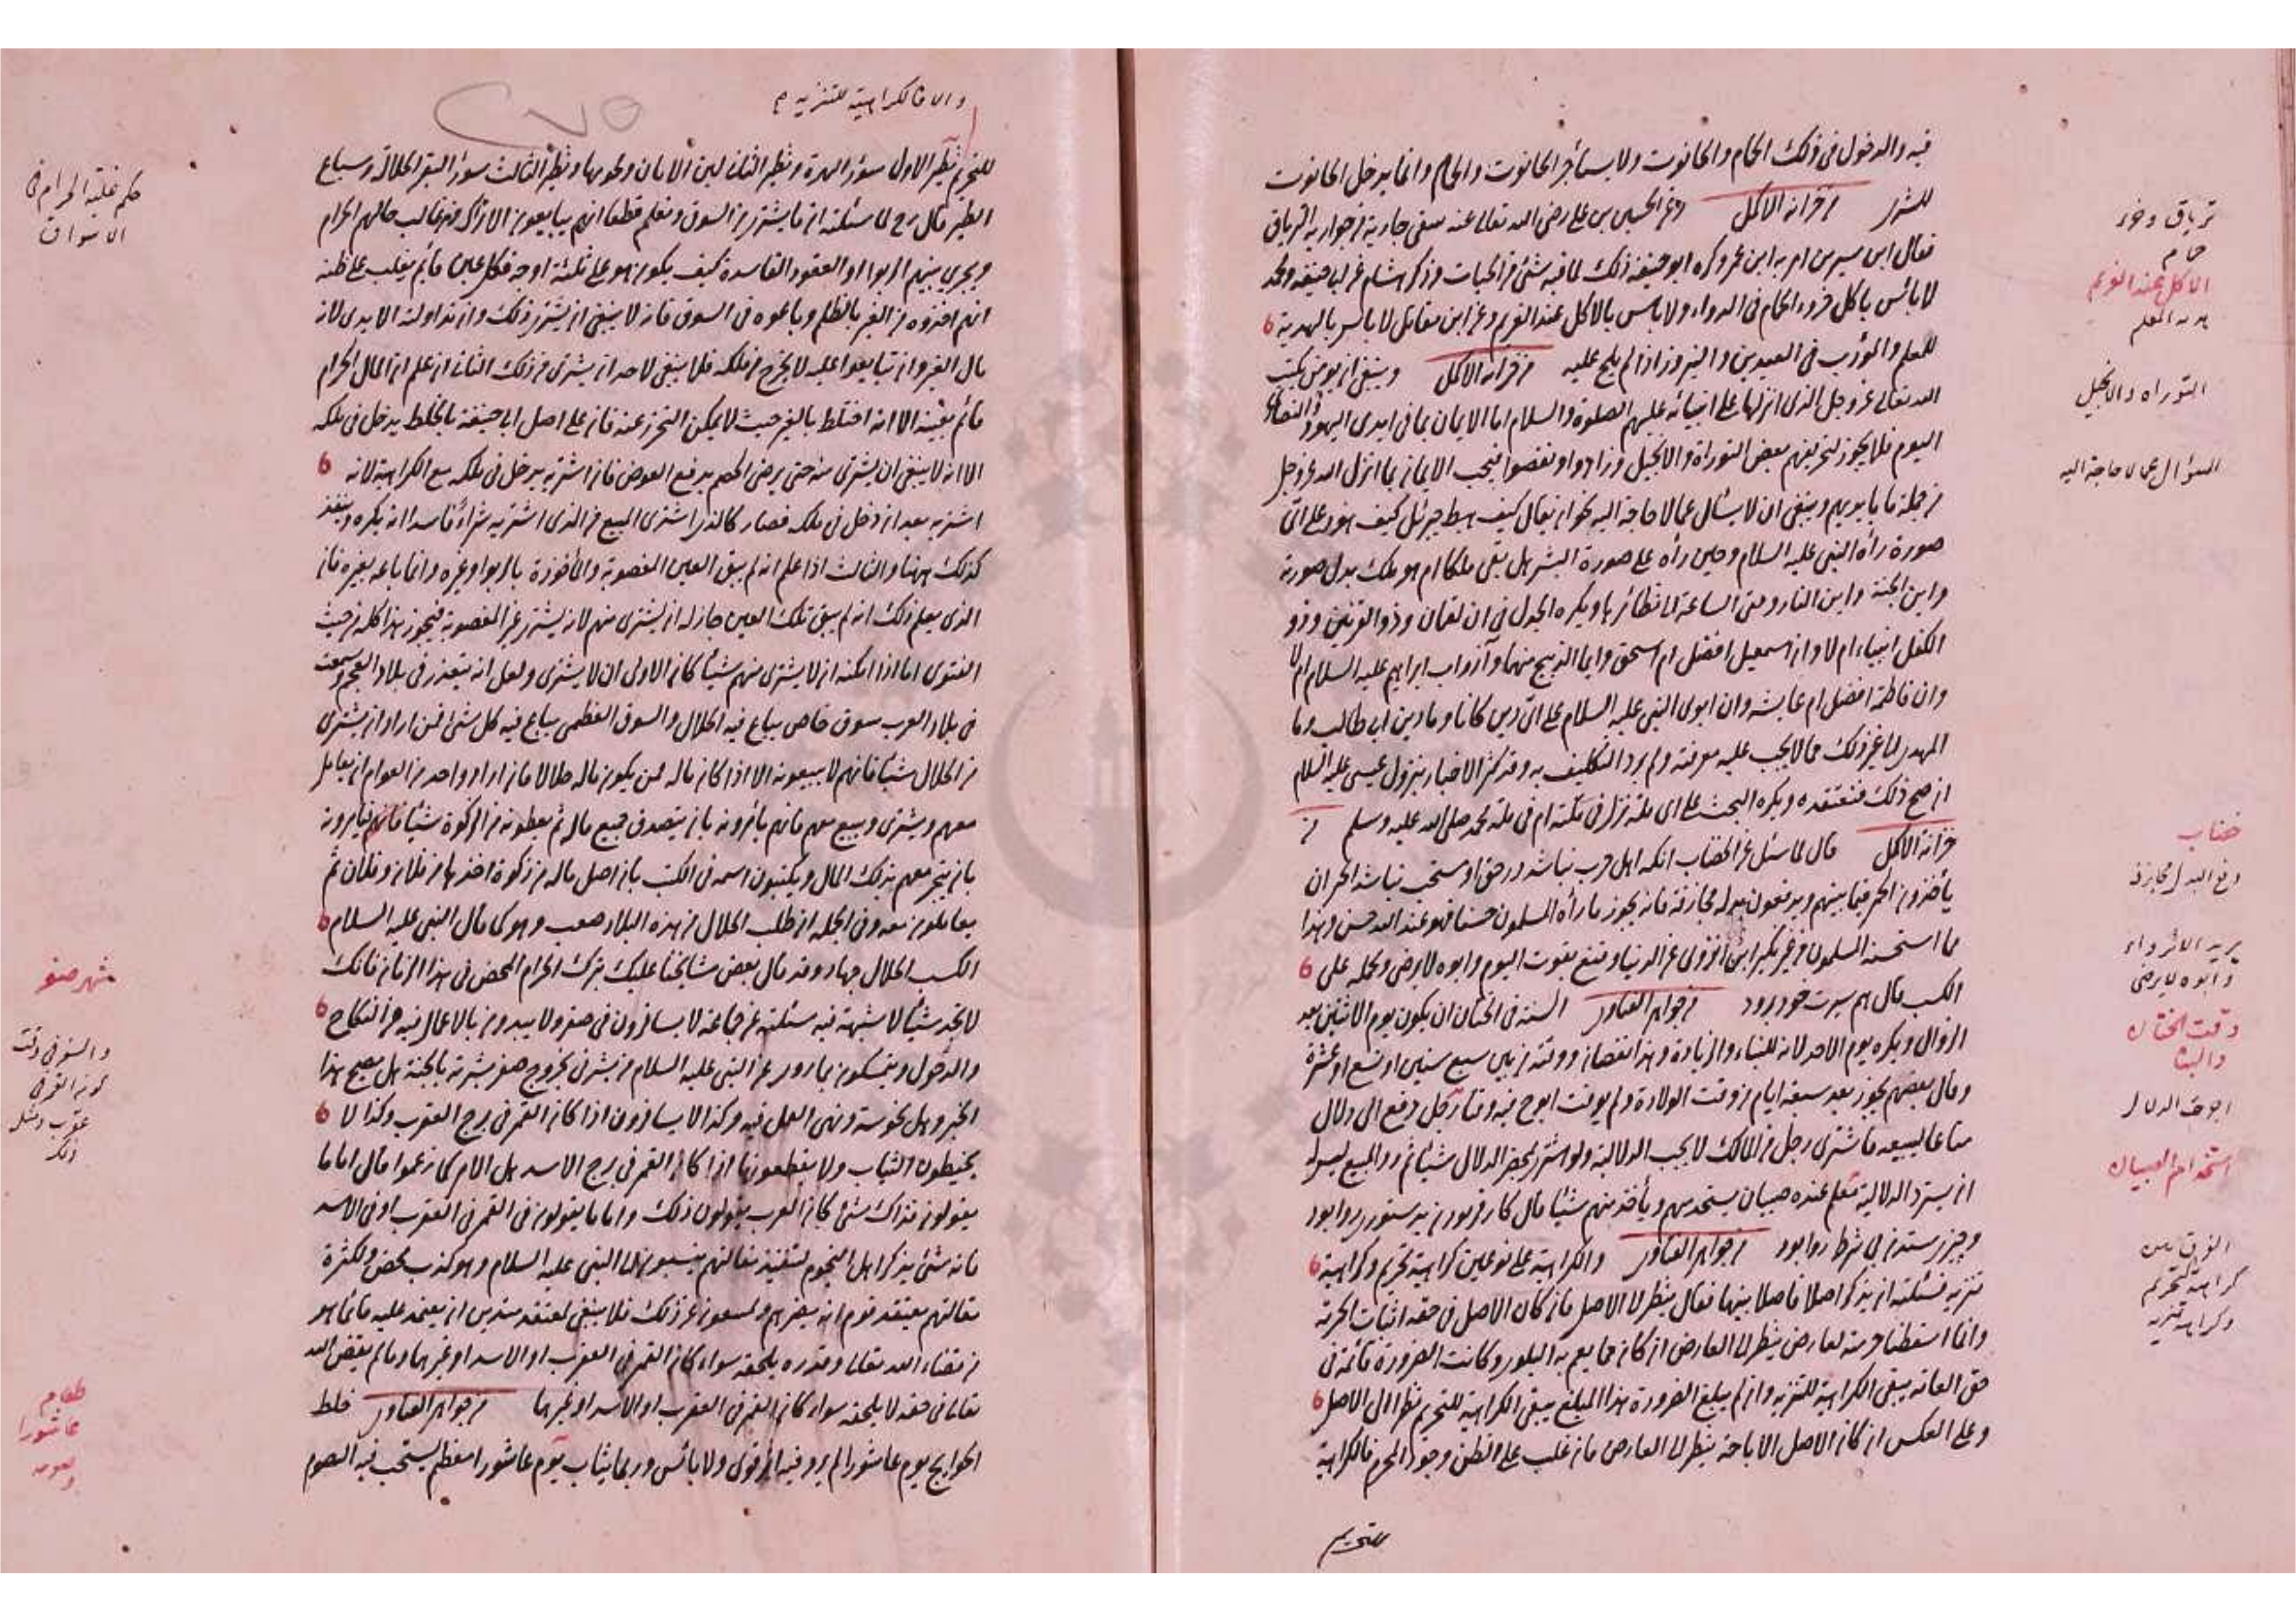 فيه والدخول في ذلك الحمام والحانوت ولا يستأجر الحانوت والحمام وانما يدخل الحانوت
للشرى من خزانة الاكمل وعن الحسين بن علي رضي الله تعالى عنه سقى جارية من جواريه الترياق
فقال ابن سيرين امر به ابن عمر وكره ابو حنيفة ذلك لما فيه شئ من الحيات وذكر هشام عن ابي حنيفة ومحمد
لا بأس باكل خرء الحمام في الدواء ولا بأس بالاكل عند الغريم وعن ابن مقاتل لا بأس بالهدية
للمعلم والمؤدب في العيدين والنيروز اذا لم يلح عليه من خزانة الاكمل وينبغي ان يؤمن بكتب
الله تعالى عز وجل الذي انزلها على انبيائه عليهم الصلوة والسلام اما الايمان بما في ايدي اليهود والنصارى
اليوم فلا يجوز لتحريفهم بعض التوراة والانجيل وزادوا ونقصوا فيجب الايمان بما انزل الله عز وجل
من جملة ما بايديهم وينبغي ان لا يسأل عما لا حاجة اليه نحو ان يقال كيف هبط جبرئيل كيف هو وعلى اي
صورة رأه النبي عليه السلام وحين رأه على صورة البشر هل بقي ملكا ام هو ملك بدل صورته
واين الجنة واين النار ومتى الساعة الى نظائرها ويكره الجدل في ان لقمان وذو القرنين وذو
الكفل انبياء ام لا وان اسمعيل افضل ام اسحق وايما الذبيح منهما وآزر اب ابراهيم عليه السلام ام لا
وان فاطمة افضل ام عايشة وان ابوي النبي عليه السلام على اي دين كانا وما دين ابي طالب وما
المهدي الى غير ذلك مما لا يجب عليه معرفته ولم يرد التكليف به وقد كثر الاخبار بنزول عيسى عليه السلام
ان صح ذلك فنعتقده ويكره البحث على اي ملة نزل في ملته ام في ملة محمد صلى الله عليه وسلم من
خزانة الاكمل قال لما سئل عن الخضاب انكه اهل حرب نباشد در حق او مستحب نباشد الجيران
يأخذون الخمر فيما بينهم ويدفعون بدله مجازفة فانه يجوز ما رأه المسلمون حسنا فهو عند الله حسن وهذا
مما استحسنه المسلمون من غير نكير ابن انزوى عن الدنيا وقنع بقوت اليوم وابوه لا يرضى ويحمله على
الكسب قال هم سرت خود برود من جواهر الفتاوى السنة في الختان ان يكون يوم الاثنين بعد
الزوال ويكره يوم الاحد لانه للبناء والزيادة وهذا نقصان ووقته من بين سبع سنين او تسع او عشرة
وقال بعضهم يجوز بعد سبعة ايام من وقت الولادة ولم يوقت ابو ح فيه وقتا رجل دفع الى دلال
متاعا ليبيعه فاشترى رجل من المالك لا يجب الدلالية ولو اشترى بمحضر الدلال شيئا ثم رد المبيع ليس له
ان يسترد الدلالية معلم عنده صبيان يستخدمهم ويأخذ منهم شيئا قال كار فرمودن بدستورى روا بود
وچيز ستدن بى شرط روا بود من جواهر الفتاوى والكراهية على نوعين كراهية تحريم وكراهية
تنزيه فسئلته ان يذكر اصلا فاصلا بينهما فقال ينظر الى الاصل فان كان الاصل في حقه اثبات الحرمة
وانما اسقطنا حرمته لعارض ينظر الى العارض ان كان مما يعم به البلوى وكانت الضرورة قائمة في
حق العامة يبقى الكراهية للتنزيه وان لم يبلغ الضرورة هذا المبلغ يبقى الكراهية للتحريم نظرا الى الاصل
وعلى العكس ان كان الاصل الاباحة ينظر الى العارض فان غلب على الظن وجود المحرم فالكراهية
للتحريم
ترياق وخرء
حمام
الاكل عند الغريم
هدية المعلم
التوراه والانجيل
السؤال عما لا حاجة اليه
خضاب
دفع البدل مجازفة
وابوه لا يرضى
وقت الختان
والبنا
اجرت الدلال
استخدام الصبيان
الفرق بين
كراهية التحريم
وكراهية تنزيه
والا فالكراهية للتنزيه
للتحريم نظير الاول سؤر الهرة ونظير الثاني لبن الاتان ولحومها ونظير الثالث سؤر البقر الجلالة وسباع
الطير قال رح لما سئلته ان ما يشترى من السوق ونعلم قطعا انهم يبايعون الاتراك ومن غالب مالهم الحرام
ويجري بينهم الربوا والعقود الفاسدة كيف يكون هو على ثلثة اوجه فكل عين قائم يغلب على ظنه
انهم اخذوه من الغير بالظلم وباعوه في السوق فانه لا ينبغي ان يشترى ذلك وان تداولته الايدي لانه
مال الغير وان تبايعوا عليه لا يخرج من ملكه فلا ينبغي لاحد ان يشترى من ذلك الثاني ان علم ان المال الحرام
قائم بعينه الا انه اختلط بالغير بحيث لا يمكن التحرز عنه فان على اصل ابي حنيفة بالخلط يدخل في ملكه
الا انه لا ينبغي ان يشترى منه حتى يرضى الخصم بدفع العوض فان اشتريه يدخل في ملكه مع الكراهية لانه
اشتريه بعد ان دخل في ملكه فصار كالذي اشترى المبيع من الذي اشتريه شراء فاسدا انه يكره وينفذ
كذلك ههنا والثالث اذا علم انه لم يبق العين المغصوبة والمأخوذة بالربوا وغيره وانما باعه بغيره فان
الذي يعلم ذلك انه لم يبق تلك العين جاز له ان يشترى منهم لانه يشترى غير المغصوبة فيجوز هذا كله من حيث
الفتوى اما اذا امكنه ان لا يشترى منهم شيئا كان الاولى ان لا يشترى ولعل انه يتعذر في بلاد العجم وسمعت
في بلاد العرب سوق خاص يباع فيه الحلال والسوق العظمى يباع فيه كل شئ فمن اراد ان يشترى
من الحلال شيئا فانهم لا يبيعونه الا اذا كان ماله ممن يكون ماله حلالا فان اراد واحد من العوام ان يعامل
معهم ويشترى ويبيع معهم فانهم يأمرونه بان يتصدق جميع ماله ثم يعطونه من الزكوة شيئا فانهم يأمرونه
بان يتجر معهم بذلك المال ويكتبون اسمه في الكتب بان اصل ماله من زكوة اخذها من فلان وفلان ثم
يعاملون معه وفي الجملة ان طلب الحلال من هذه البلاد صعب وهو كما قال النبي عليه السلام
الكسب الحلال جهاد وقد قال بعض مشايخنا عليك بترك الحرام المحض في هذا الزمان فانك
لا تجد شيئا لا شبهة فيه سئلته عن جماعة لا يسافرون في صفر ولا يبدون بالاعمال فيه من النكاح
والدخول ويتمسكون بما روي عن النبي عليه السلام من بشرني بخروج صفر بشرته بالجنة هل يصح هذا
الخبر وهل نحوسته ونهى العمل فيه وكذا لا يسافرون اذا كان القمر في برج العقرب وكذا لا
يخيطون الثياب ولا يقطعونها اذا كان القمر في برج الاسد هل الامر كما زعموا قال اما ما
يقولون فذاك شئ كان العرب يقولون ذلك واما ما يقولون في القمر في العقرب او في الاسد
فانه شئ يذكر اهل النجوم لتنفيذ مقالتهم ينسبونها الى النبي عليه السلام وهو كذب محض ولكثرة
مقالتهم يعتقد قوم انه يضرهم فلا ينبغي لمعتقد متدين ان يعتمد عليه فانما هو
من قضاء الله تعالى وقدره يلحقه سواء كان القمر في العقرب او الاسد او غيرها وما لم يقض الله
تعالى في حقه لا يلحقه سواء كان القمر في العقرب او الاسد او غيرها من جواهر الفتاوى خلط
الحوايج يوم عاشورا لم يرو فيه اثر قوى ولا بأس وربما يثاب يوم عاشورا معظم يستحب فيه الصوم
حكم غلبة الحرام في
الاسواق
شهر صفر
والسفر في وقت
كون القمر في
عقرب
طعام
عاشورا
وصومه